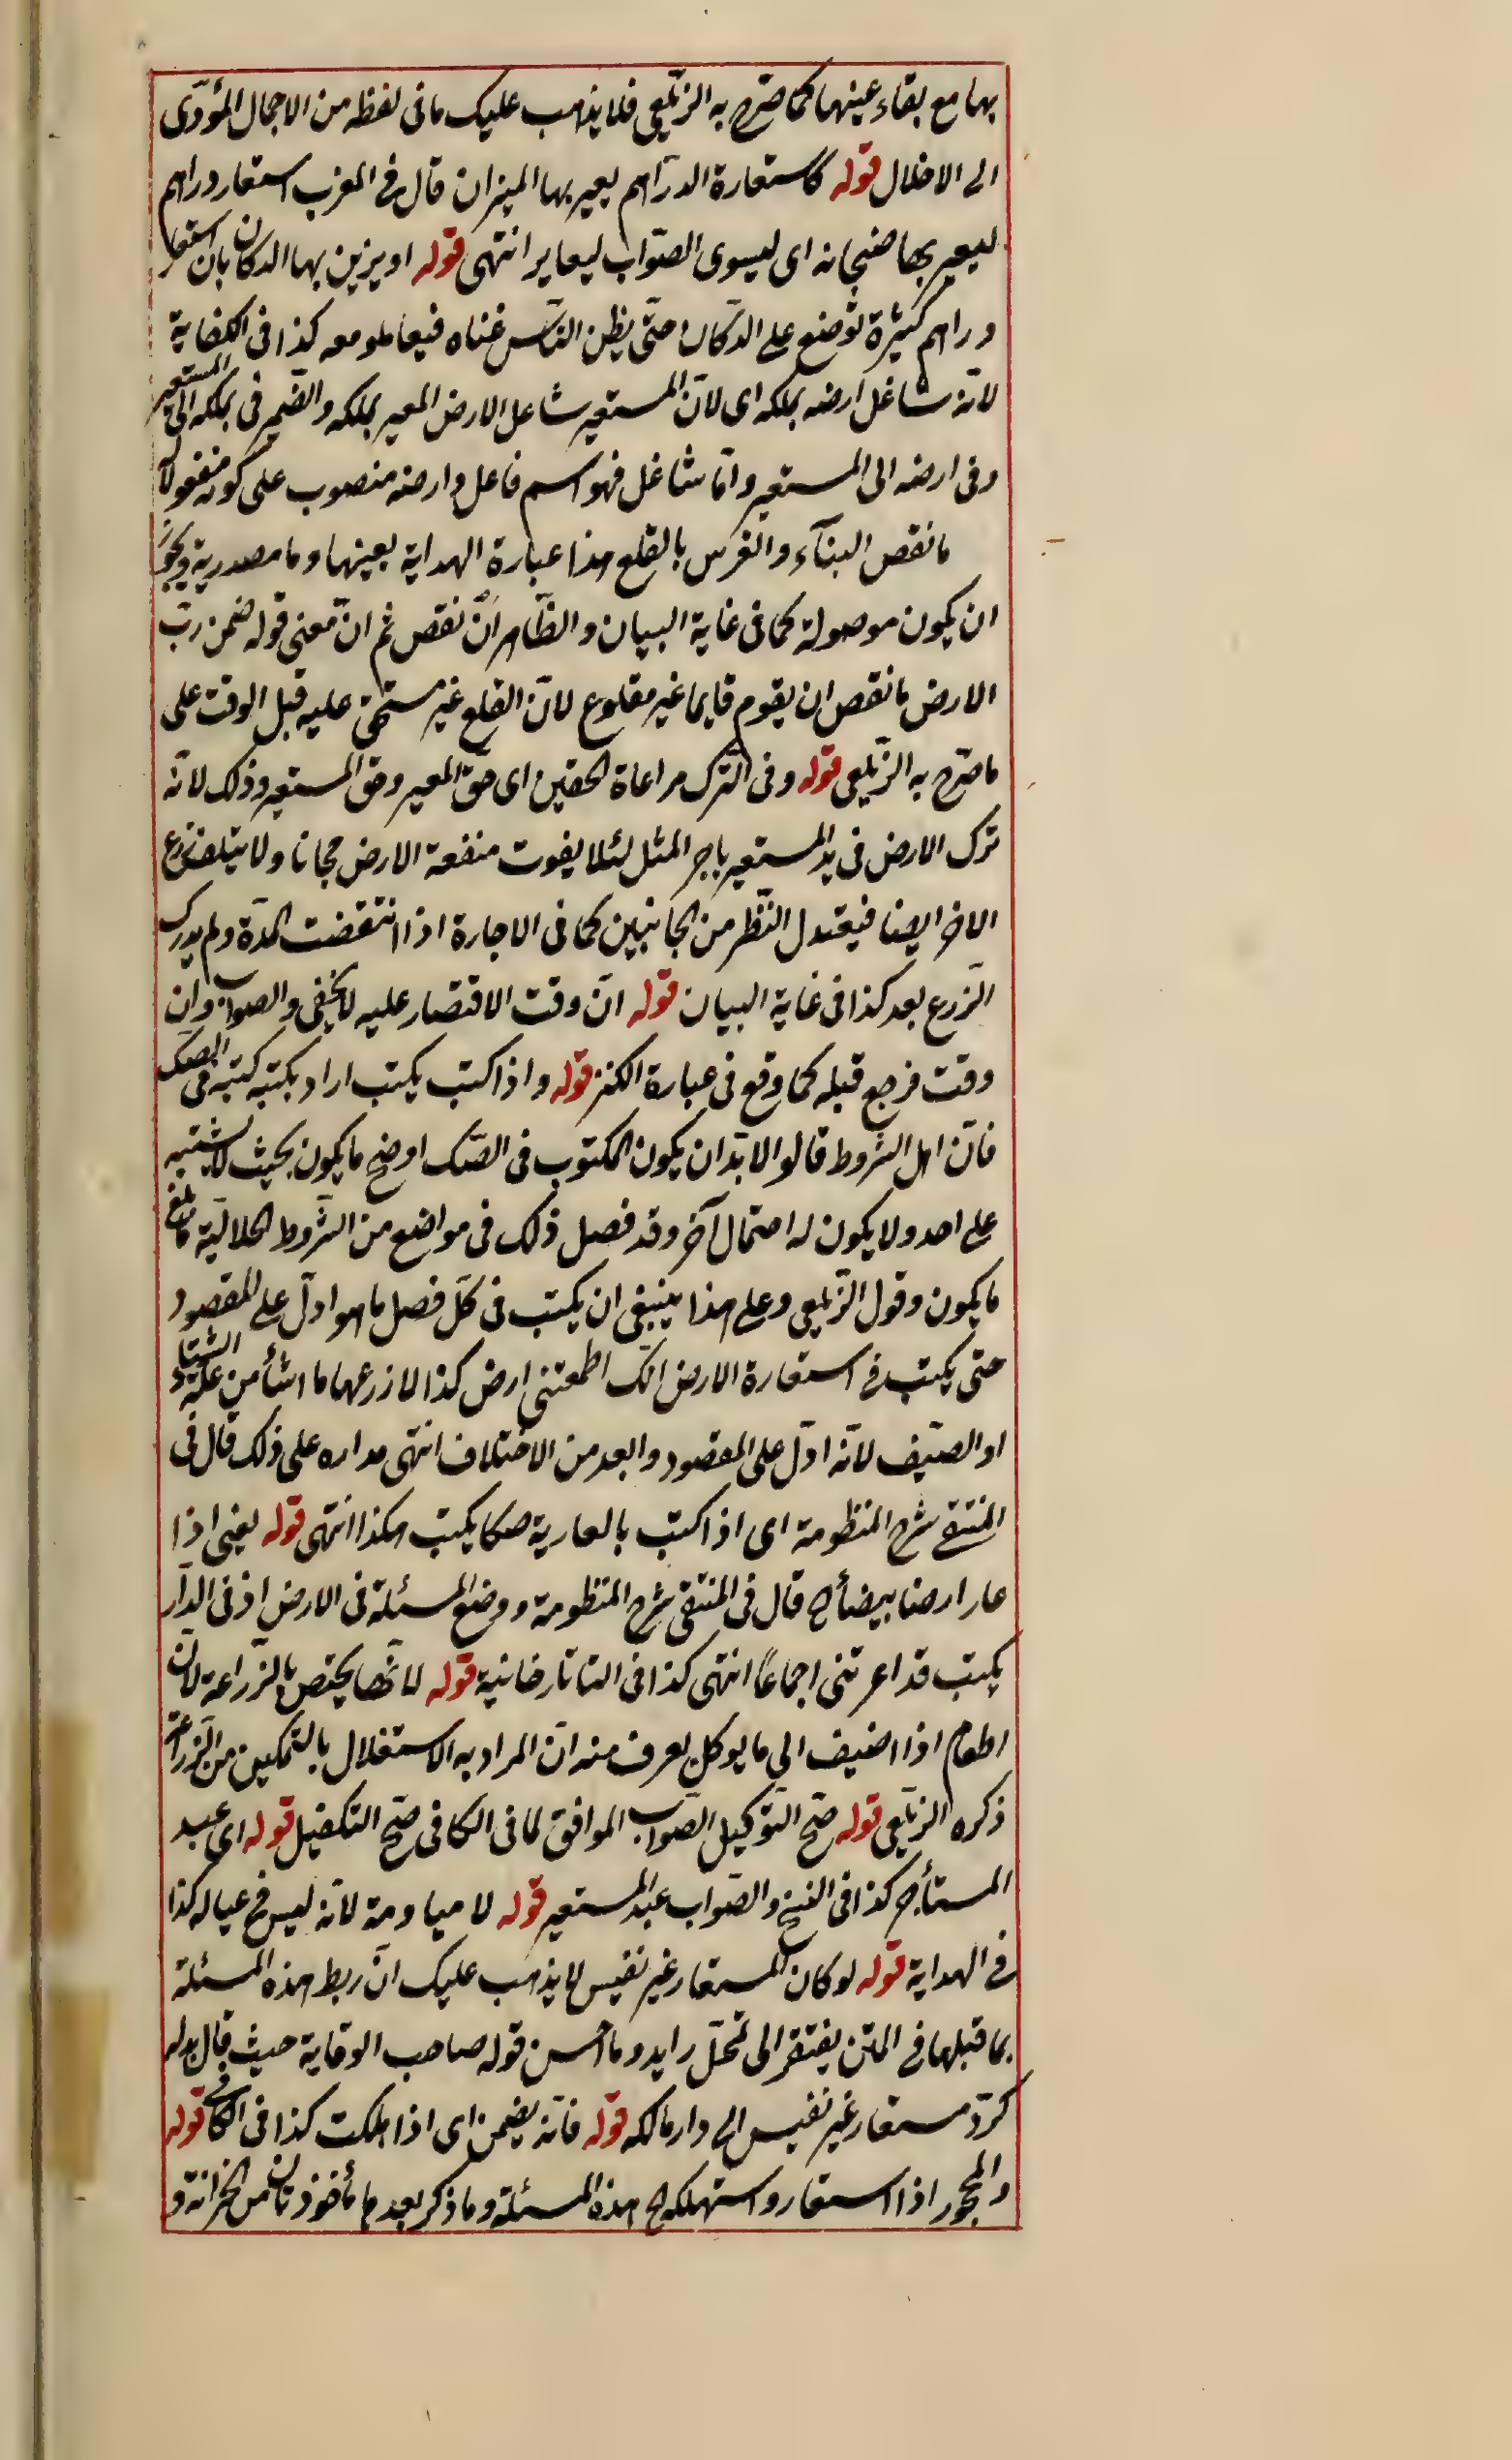 بها مع بقاء عينهما كما صرّح به الزيلعي فلا يذهب عليك ما فى لفظه من الاجمال المؤدّى
الى الاخلال قوله كاستعارة الدراهم ليعير بها الميزان قال فى المغرب استعار دراهم
ليعير بها صنجاته اى ليسوى الصّواب ليعاير انتهى قوله او يزين بها الدكان بان استعار
دراهم كثيرة توضع على الدكان حتّى يظن النّاس غناه فيعاملو معه كذا فى الكفاية
لانّه شاغل ارضه بملكه اى لانّ المستعير شاغل الارض المعير بملكه والضّمير فى بملكه الى المستعير
وفى ارضه الى المستعير وامّا شاغل فهو اسم فاعل وارضه منصوب على كونه مفعولا
ما نقص البنآء والغرس بالقلع هذا عبارة الهداية بعينها وما مصدرية ويجوز
ان يكون موصولة كما فى غاية البيان والظّاهر انّ نقص ثم انّ معنى قوله ضمن ربّ
الارض ما نقص ان يقوم قايما غير مقلوع لانّ القلع غير مستحق عليه قبل الوقت على
ما صرّح به الزّيلعي قوله وفى الترك مراعاة الحقين اى حقّ المعير وحق المستعير وذلك لانّه
ترك الارض فى يد المستعير باجر المثل لئلا يفوت منفعة الارض مجانا ولا يتلف زرع
الاخر ايضا فيعتدل النّظر من الجانبين كما فى الاجارة اذا انتقضت المدّة ولم يدرك
الزّرع بعد كذا فى غاية البيان قوله انّ وقت الاقتصار عليه لا يخفى والصواب وان
وقت فرجع قبله كما وقع فى عبارة الكنز قوله واذا كتب يكتب اراد بكتبه كتبه فى الصك
فانّ اهل الشّروط قالوا لابدّ ان يكون المكتوب فى الصّك اوضح ما يكون بحيث لا يشتبه
على احد ولا يكون له احتمال آخر وقد فصل ذلك فى مواضع من الشّروط الجلاليّة كابلغ
ما يكون وقول الزّيلعي وعلى هذا ينبغى ان يكتب فى كلّ فصل ما هو ادلّ على المقصود
حتى يكتب فى استعارة الارض انّك اطعمتنى ارض كذا لازرعها ما اشأ من غلة الشتاء
او الصّيف لانّه ادلّ على المقصود وابعد من الاختلاف انتهى مداره على ذلك قال فى
المنتقى شرح المنظومة اى اذا كتب بالعارية صكا يكتب هكذا انتهى قوله يعنى اذا
عار ارضا بيضأ الخ قال فى المنتقى شرح المنظومة ووضع المسئلة فى الارض اذ فى الدّار
يكتب قد اعرتنى اجماعًا انتهى كذا فى التاتارخانية قوله لانّها يختص بالزّراعة لانّ
اطعام اذا اضيف الى ما يوكل يعرف منه انّ المراد به الاستغلال بالتّمكين من الزّراعة
ذكره الزيلعي قوله صحّ التّوكيل الصّواب الموافق لما فى الكافى صحّ التكفيل قوله اى عبد
المستأجر كذا فى النسخ والصّواب عبد المستعير قوله لا مياومة لانّه ليس فى عياله كذا
فى الهداية قوله لو كان المستعار غير نفيس لا يذهب عليك انّ ربط هذه المسئلة
بما قبلها فى المتن يفتقر الى تمحّل زايد وما احسن قوله صاحب الوقاية حيث قال بدله
كردّ مستعار غير نفيس الى دار مالكه قوله فانّه يضمن اى اذا هلكت كذا فى الكافى قوله
والمحجور اذا استعار واستهلكه الخ هذه المسئلة وما ذكر بعدها مأخوذتان من الخزانة و